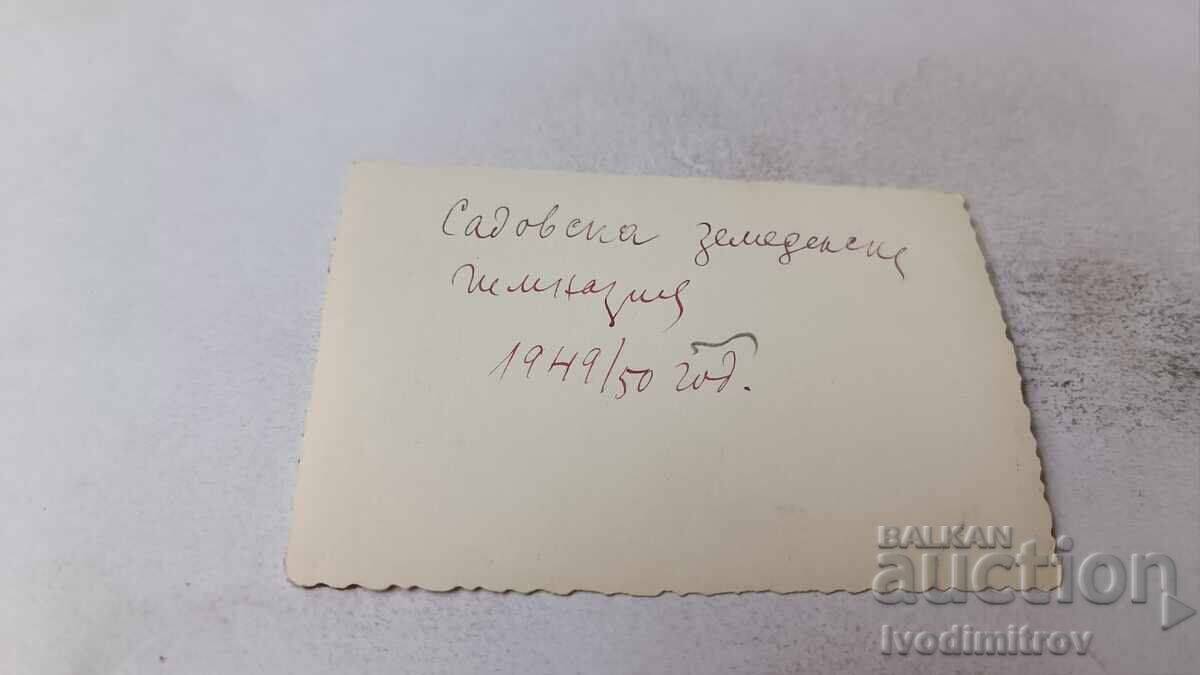 Садовска земеделска
гимназия
1949/50 год.
BALKAN
auction
Ivodimitrov